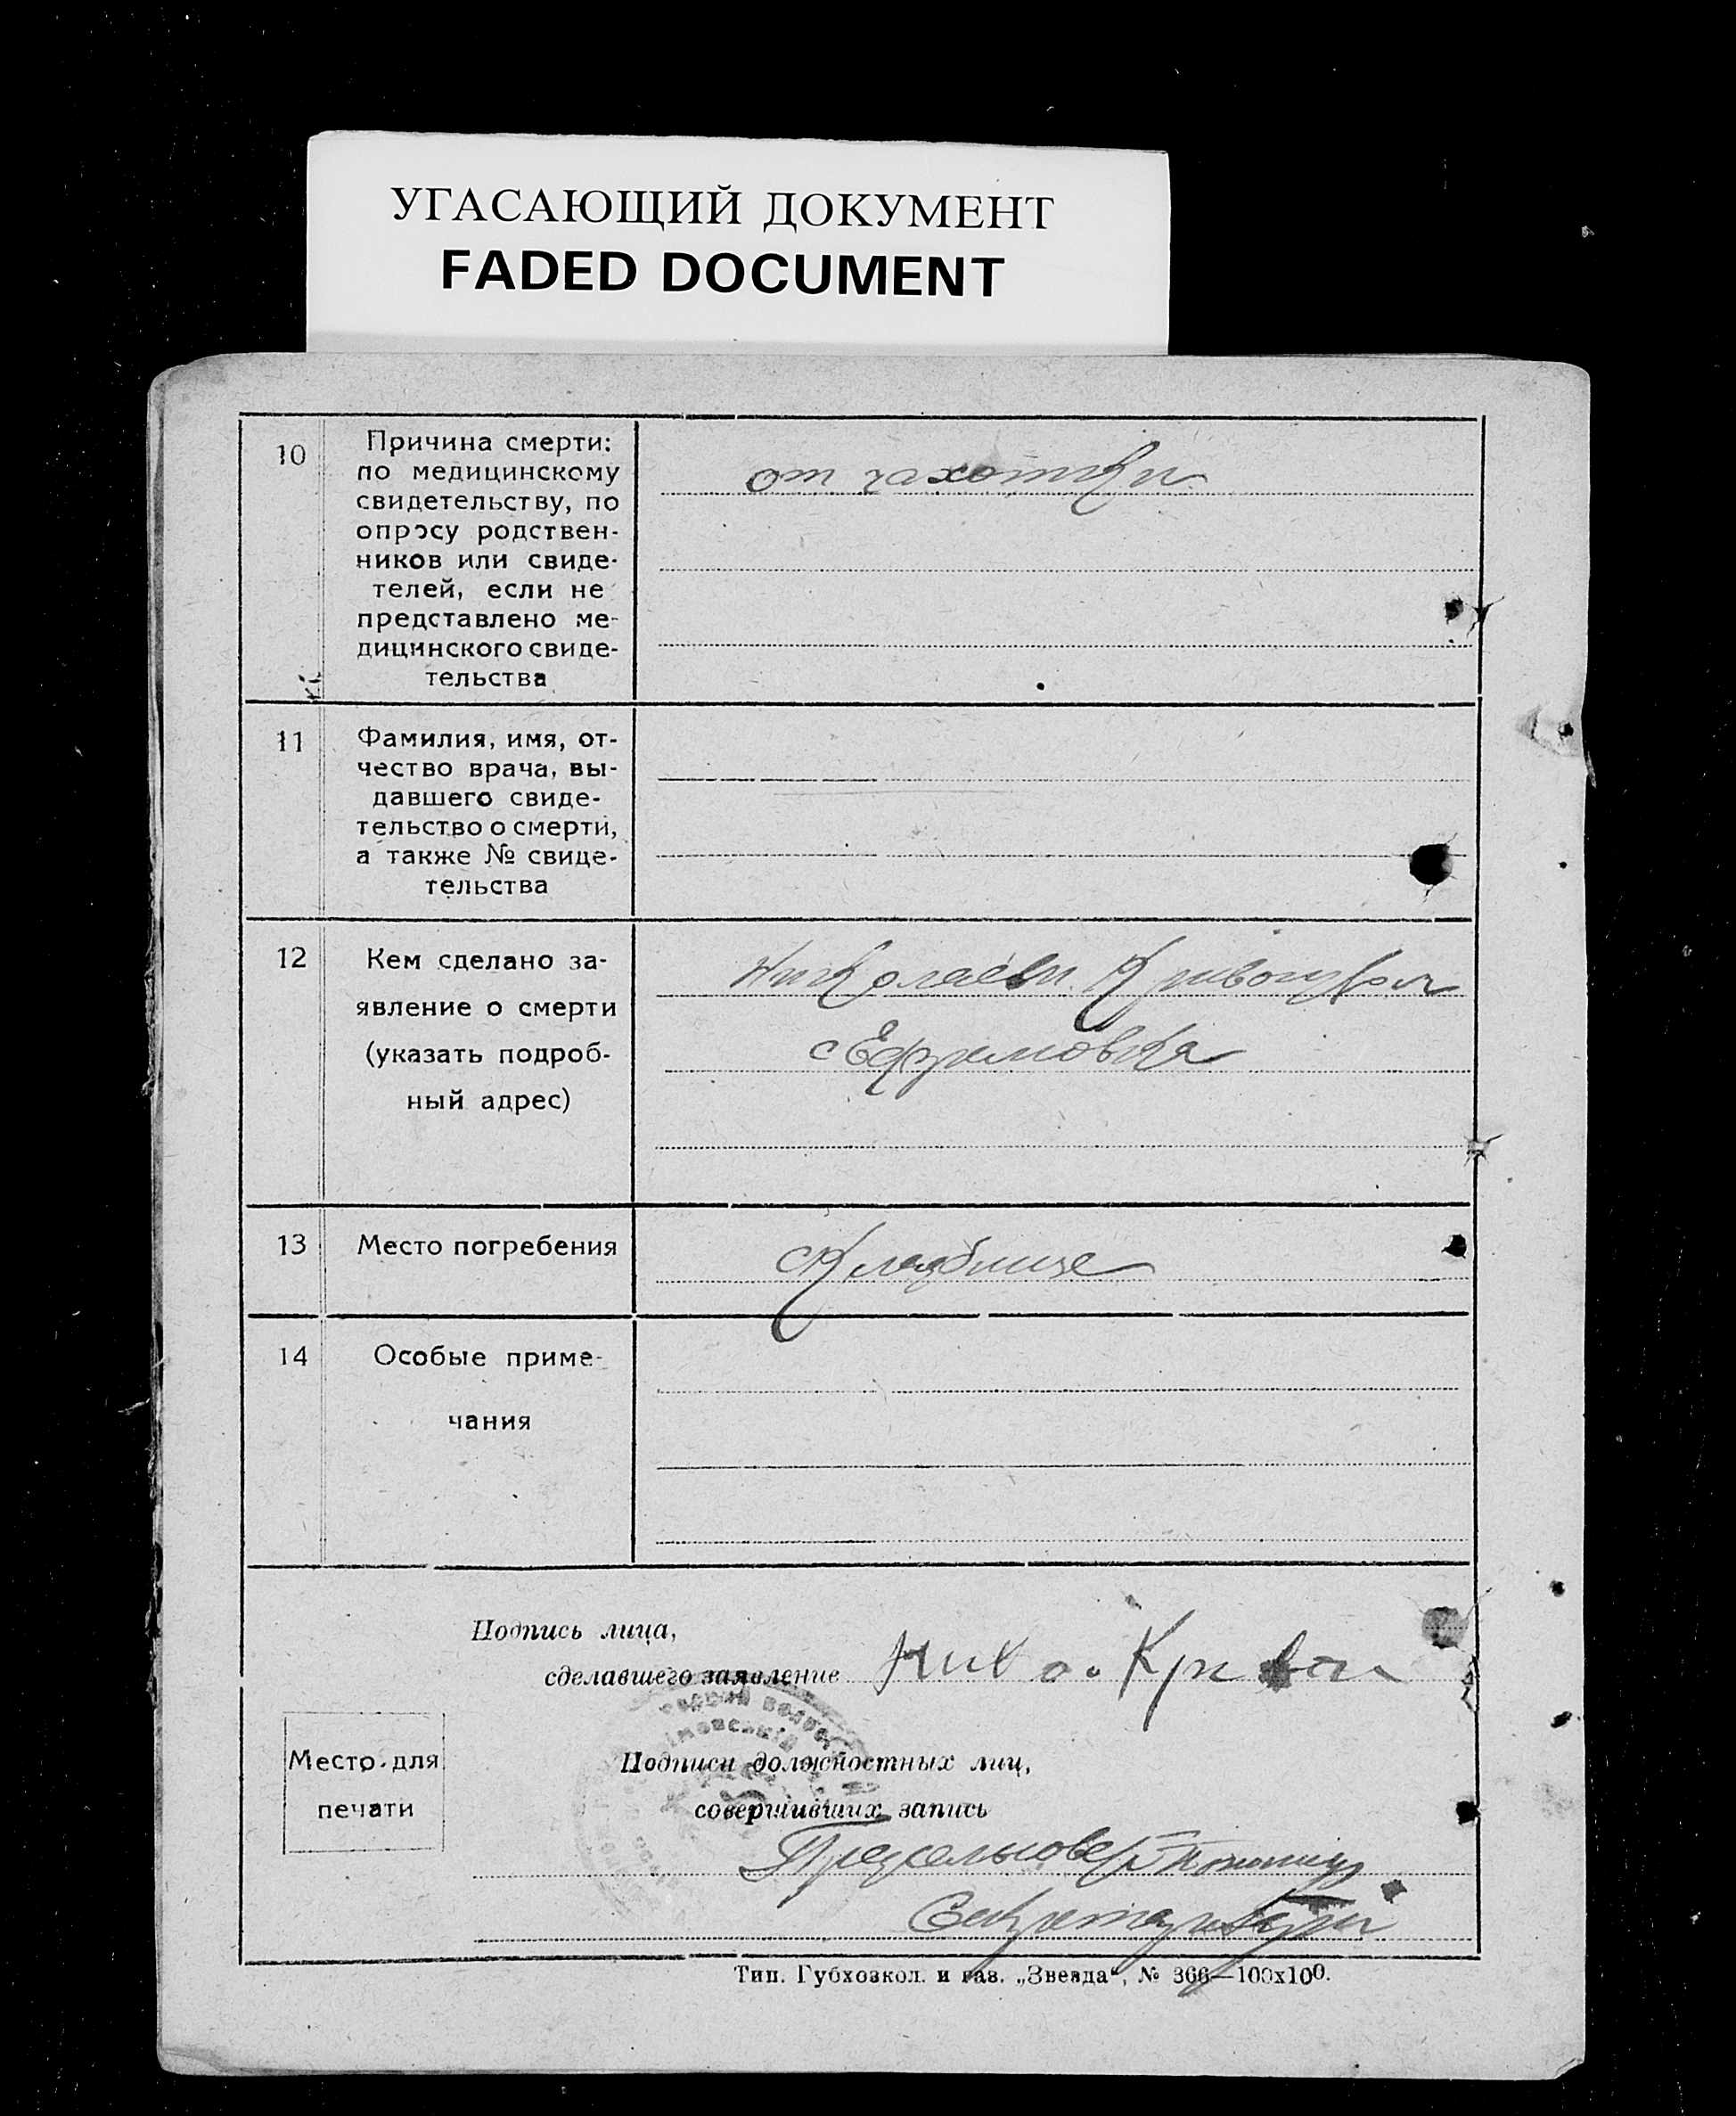 УГАСАЮЩИЙ ДОКУМЕНТ
FADED DOCUMENT
10
Причина смерти:
по медицинскому
свидетельству, по
опросу родствен-
ников или свиде-
телей, если не
представлено ме-
дицинского свиде-
тельства
от чахотки
11
Фамилия, имя, от-
чество врача, вы-
давшего свиде-
тельство о смерти,
а также № свиде-
тельства
12
Кем сделано за-
явление о смерти
(указать подроб-
ный адрес)
Николаем
с Ефремовка
13
Место погребения
Кладбище
14
Особые приме-
чания
Подпись лица,
сделавшего заявление
Место для
печати
Подписи должностных лиц,
совершивших запись
Предсельсовета
Секретарь
Тип. Губхозкол. и газ. „Звезда“, № 366—100х100.